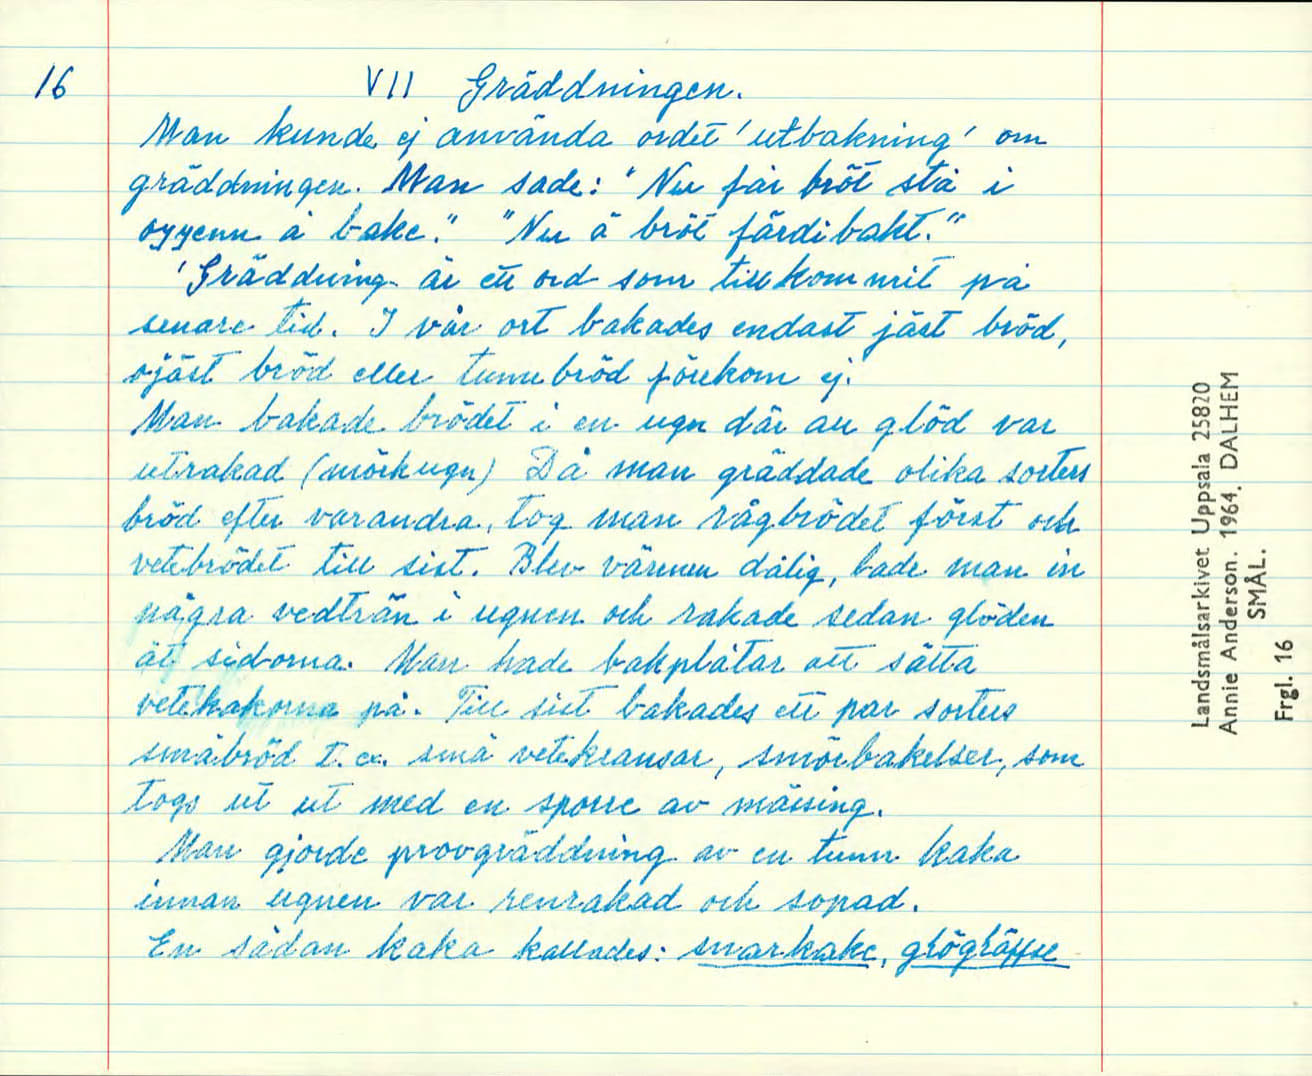 16
VII Gräddningen.
Man kunde ej använda ordet 'utbakning' om
gräddningen. Man sade: "Nu får bröt stå i
oyyenn å bake." "Nu ä bröt färdibakt."
'Gräddning är ett ord som tillkommit på
senare tid. I vår ort bakades endast jäst bröd,
ojäst bröd eller tunnbröd förekom ej.
Man bakade brödet i en ugn där all glöd var
utrakad (mörkugn) Då man gräddade olika sorters
bröd efter varandra, tog man rågbrödet först och
vetebrödet till sist. Blev värmen dålig, lade man in
några vedträn i ugnen och rakade sedan glöden
åt sidorna. Man hade bakplåtar att sätta
vetekakorna på. Till sist bakades ett par sorters
småbröd t. ex. små vetekransar, smörbakelser, som
togs ut ut med en sporre av mässing.
Man gjorde provgräddning av en tunn kaka
innan ugnen var renrakad och sopad.
En sådan kaka kallades: snarkake,
Landsmålsarkivet Uppsala 25820
Annie Anderson. 1964. DALHEM
SMÅL.
Frgl. 16